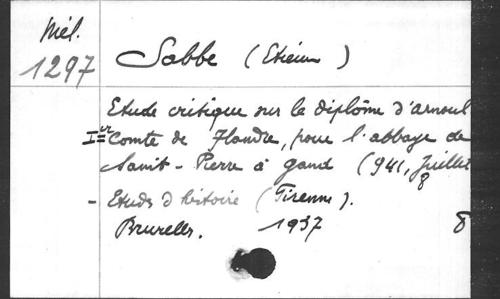 Mél.
1297
Sabbe (Etienne)
Etude critique sur le diplôme d'Arnoul
Ier Comte de Flandre, pour l'abbaye de
Saint-Pierre à Gand (941, Juillet
8
- Etudes d'histoire (Pirenne).
Bruxelles. 1937 8